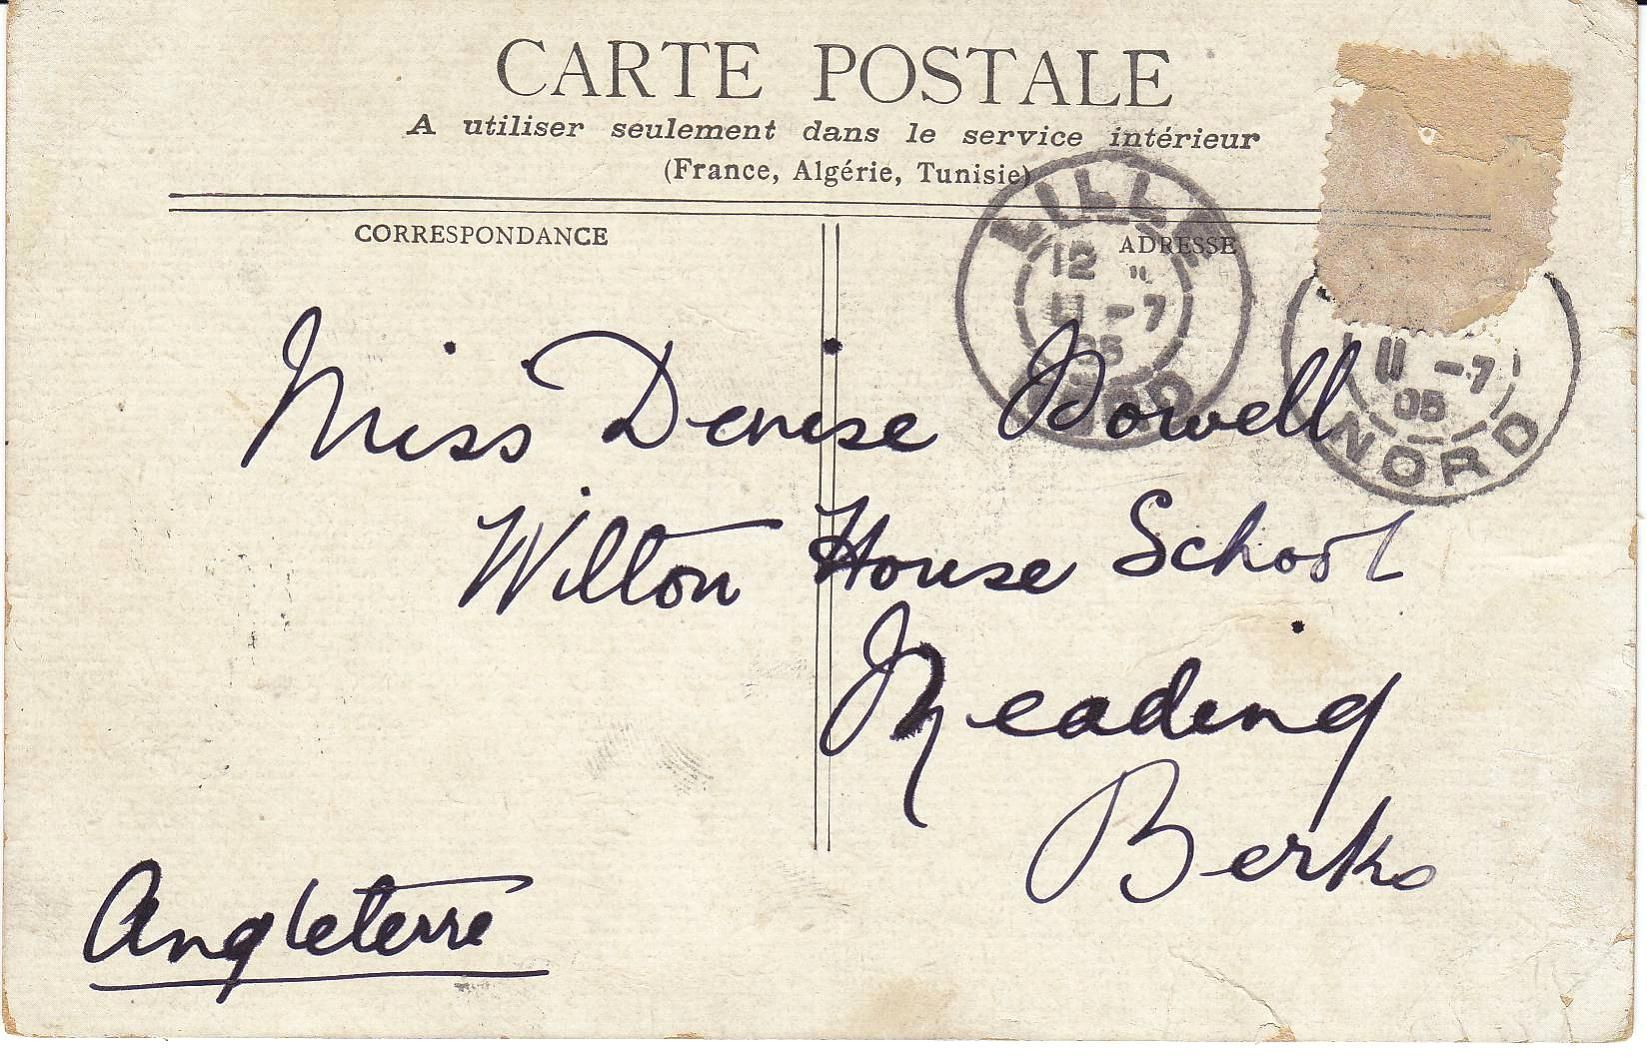 CARTE POSTALE
A utiliser seulement dans le service intérieur
(France, Algérie, Tunisie)
CORRESPONDANCE
ADRESSE
LILLE
12
11 -7
05
NORD
11 -7
05
NORD
Miss Denise Powell
Wilton House School
Reading
Berks
Angleterre